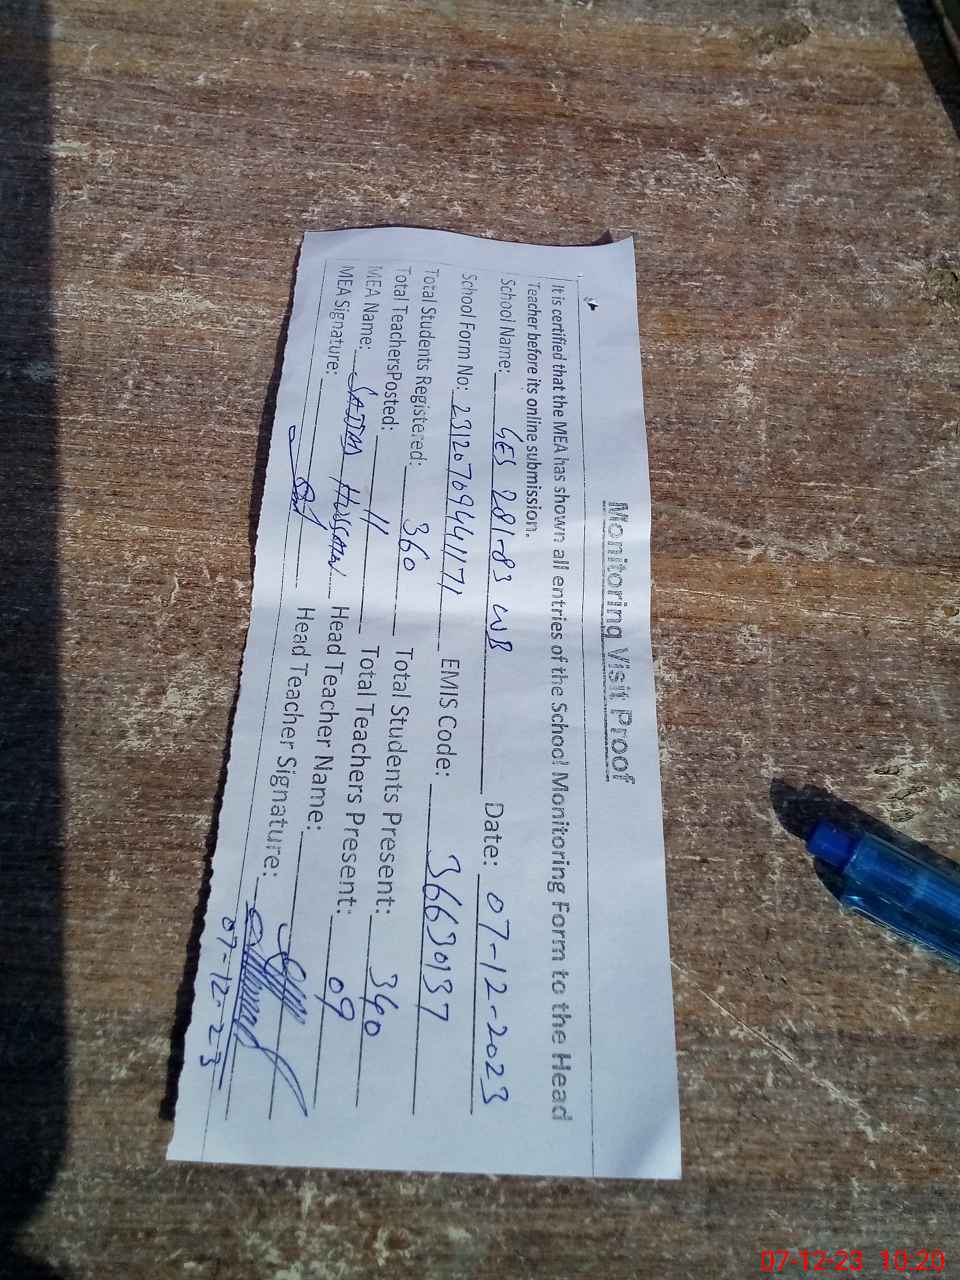 Monitoring Visit Proof
It is certified that the MEA has shown all entries of the School Monitoring Form to the Head
Teacher before its online submission.
School Name: GES 281-83 WB Date: 07-12-2023
School Form No: 23120709441171 EMIS Code: 36630137
Total Students Registered: 360 Total Students Present: 340
Total TeachersPosted: 11 Total Teachers Present: 09
MEA Name: SAJJAD HUSSAIN Head Teacher Name:
MEA Signature: Head Teacher Signature:
07-12-23
07-12-23 10:20